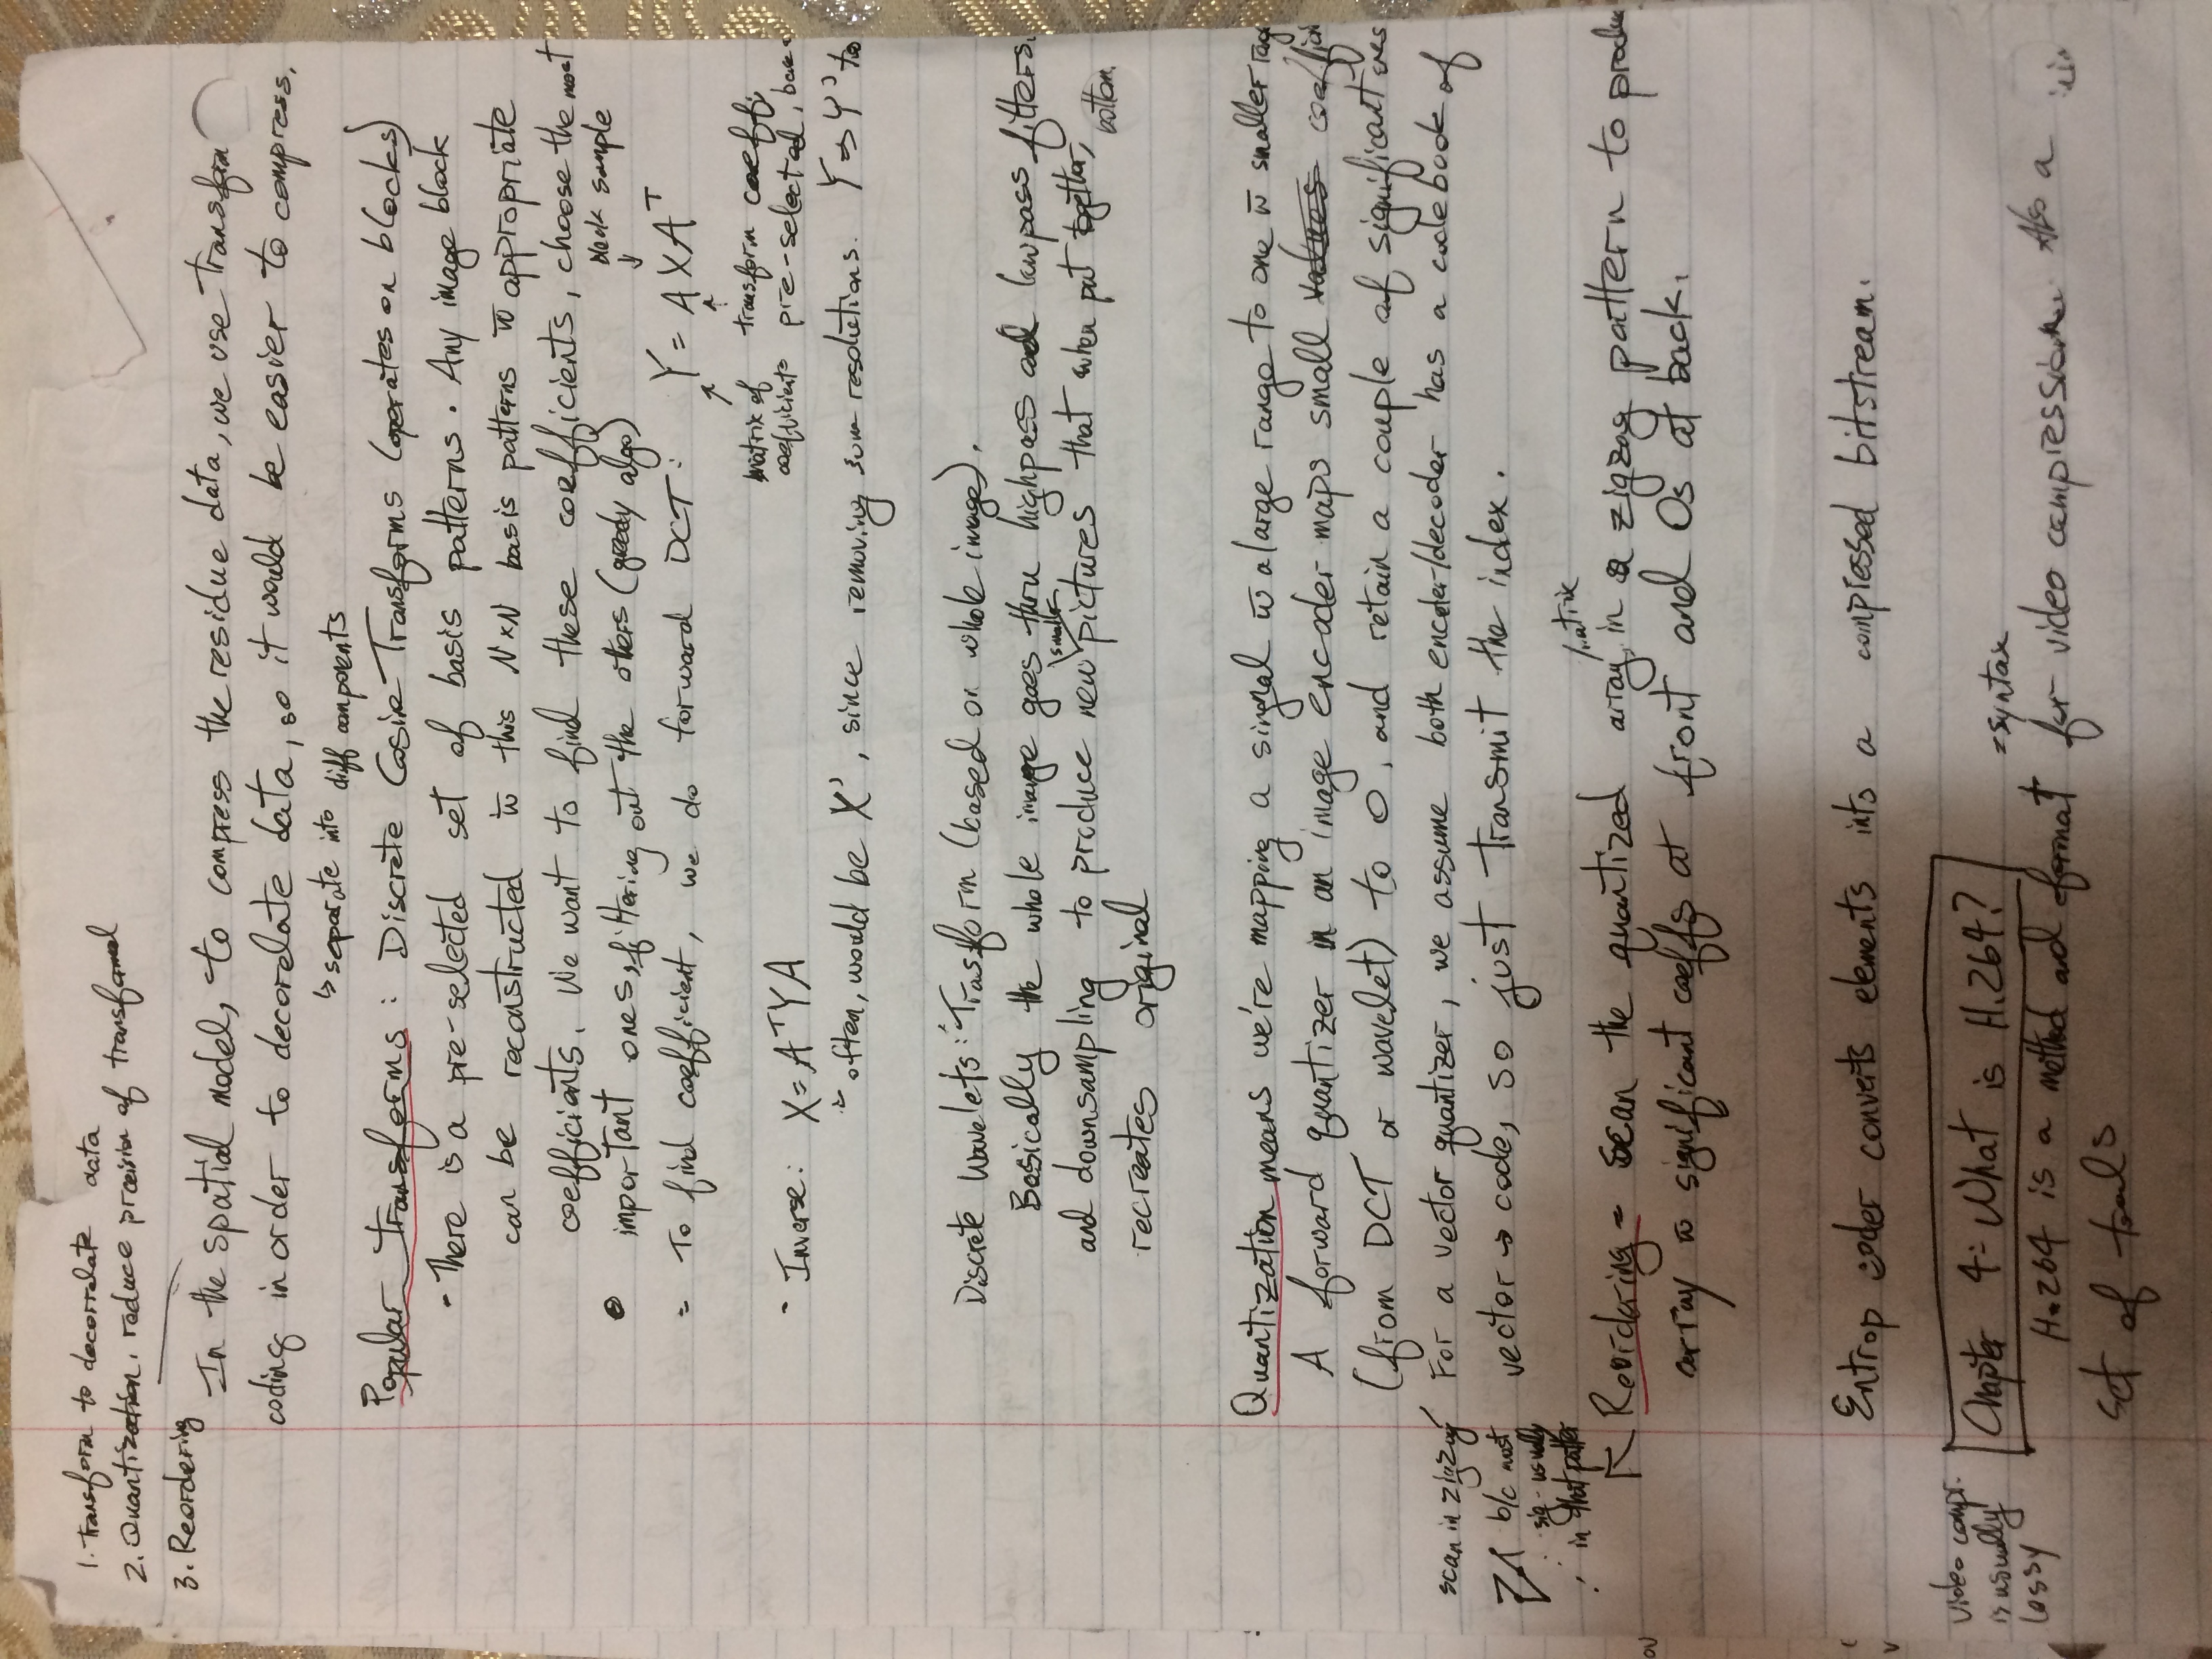 1. Transform to decorrelate data
2. Quantization, reduce precision of transformed
3. Reordering
In the spatial model, to compress the residue data, we use Transform
coding in order to decorelate data, so it would be easier to compress.
↳ separate into diff components
Popular Transforms: Discrete Cosine Transforms (operates on blocks)
- There is a pre-selected set of basis patterns. Any image block
can be reconstructed w̄ this N×N basis patterns w̄ appropriate
coefficients. We want to find these coefficients, choose the most
important ones, filtering out the others (greedy algo)
block sample
- To find coefficient, we do forward DCT: Y = AXAᵀ
matrix of coefficients
transform coeff,
pre-selected,
- Inverse: X = AᵀYA
often, would be X', since removing some resolutions. Y ⇒ Y' too
Discrete Wavelets: Trasform (based on whole image).
Basically the whole image goes thru highpass and lowpass filters.
smaller
and downsampling to produce new pictures that when put together,
bottom.
recreates original
Quantization means we're mapping a singnal w̄ a large range to one w̄ smaller
A forward quantizer in an image encoder maps small ~~values~~
(from DCT or wavelet) to 0, and retain a couple of significant ones
For a vector quantizer, we assume both encoder/decoder has a codebook of
vector → code, so just transmit the index.
scan in zigzag
b/c most
sig - usually
in that patter
matrix
Reordering - scan the quantized array in a zigzag pattern to produce
array w̄ significant coeffs at front and 0s at back.
Entrop coder converts elements into a compressed bitstream.
video compr.
is usually
lossy
Chapter 4: What is H.264?
= syntax
H.264 is a method and format for video compression. Also a
set of tools